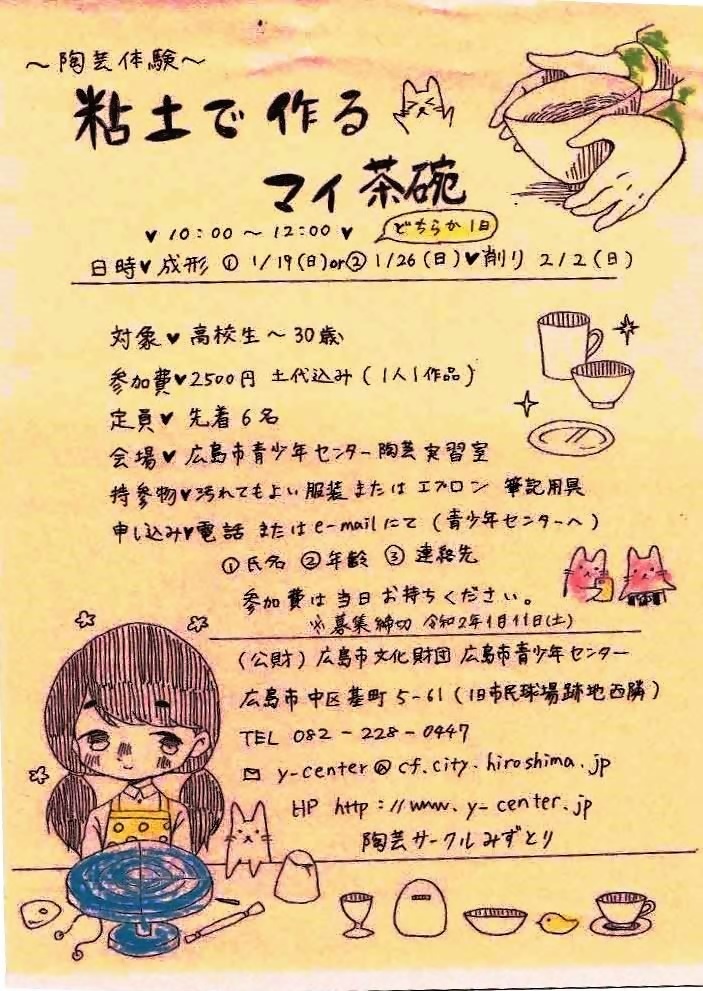 ～陶芸体験～
粘土で作る
マイ茶碗
♥ 10:00 ～ 12:00 ♥
どちらか1日
日時♥成形 ① 1/19(日)or② 1/26(日)♥削り 2/2(日)
対象♥高校生～30歳
参加費♥2500円 土代込み(1人1作品)
定員♥先着6名
会場♥広島市青少年センター陶芸実習室
持参物♥汚れてもよい服装またはエプロン 筆記用具
申し込み♥電話またはe-mailにて(青少年センターへ)
①氏名 ②年齢 ③連絡先
参加費は当日お持ちください。
※募集締切 令和2年1月11日(土)
(公財)広島市文化財団 広島市青少年センター
広島市中区基町5-61(旧市民球場跡地西隣)
TEL 082-228-0447
✉ y-center@cf.city.hiroshima.jp
HP http://www.y-center.jp
陶芸サークルみずとり